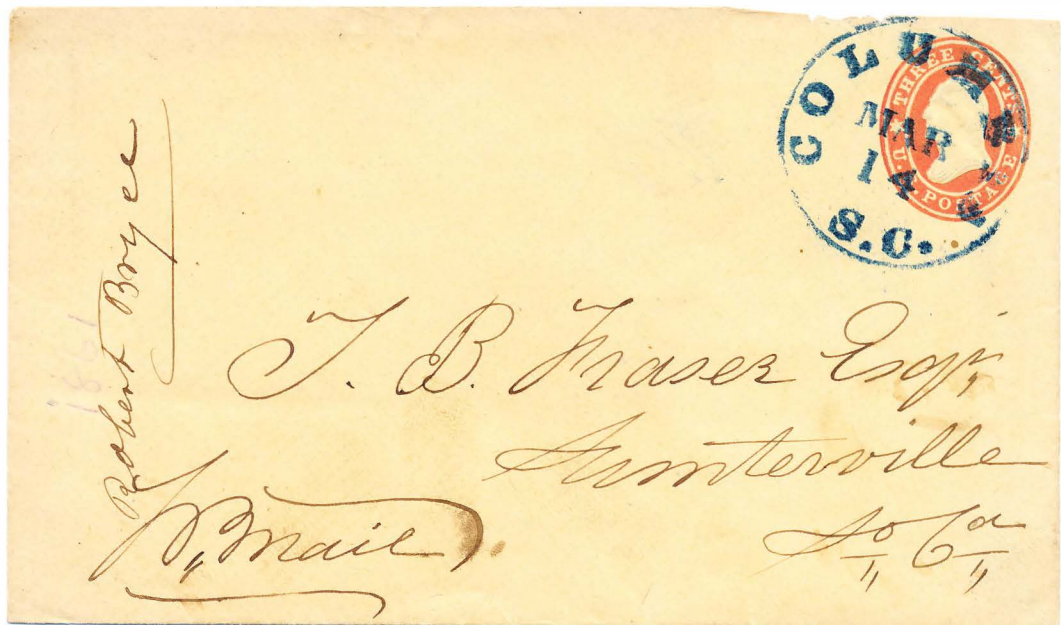 COLUMBIA
MAR
14
S.C.
THREE CENTS
U.S. POSTAGE
Robert Bryce
T. B. Fraser Esqr,
Sumterville
So Ca
Mail